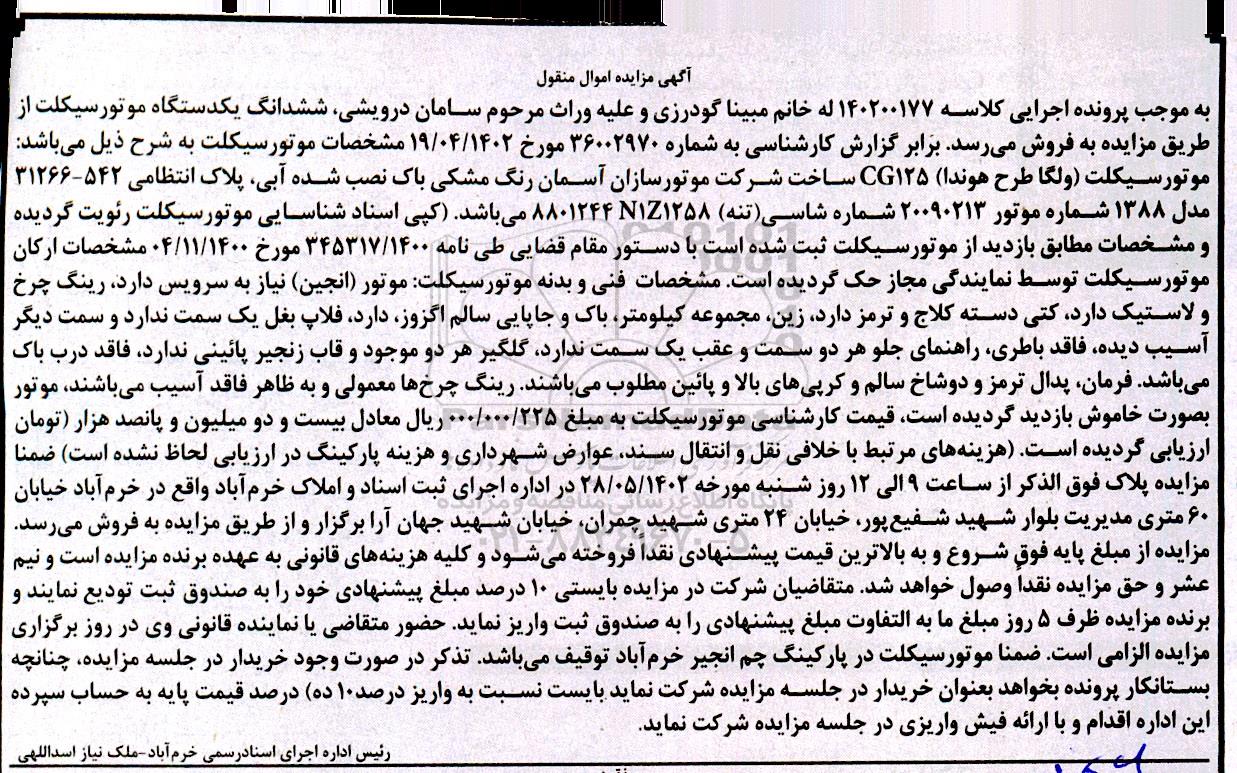 آگهی مزایده اموال منقول
به موجب پرونده اجرایی کلاسه ۱۴۰۲۰۰۱۷۷ له خانم مبینا گودرزی و علیه وراث مرحوم سامان درویشی، ششدانگ یکدستگاه موتورسیکلت از
طریق مزایده به فروش می‌رسد. برابر گزارش کارشناسی به شماره ۳۶۰۰۲۹۷۰ مورخ ۱۹/۰۴/۱۴۰۲ مشخصات موتورسیکلت به شرح ذیل می‌باشد:
موتورسیکلت (ولگا طرح هوندا) CG۱۲۵ ساخت شرکت موتورسازان آسمان رنگ مشکی باک نصب شده آبی، پلاک انتظامی ۵۴۲-۳۱۲۶۶
مدل ۱۳۸۸ شماره موتور ۲۰۰۹۰۲۱۳ شماره شاسی(تنه) N۱Z۱۲۵۸ ۸۸۰۱۲۴۴ می‌باشد. (کپی اسناد شناسایی موتورسیکلت رئویت گردیده
و مشخصات مطابق بازدید از موتورسیکلت ثبت شده است با دستور مقام قضایی طی نامه ۳۴۵۳۱۷/۱۴۰۰ مورخ ۰۴/۱۱/۱۴۰۰ مشخصات ارکان
موتورسیکلت توسط نمایندگی مجاز حک گردیده است. مشخصات فنی و بدنه موتورسیکلت: موتور (انجین) نیاز به سرویس دارد، رینگ چرخ
و لاستیک دارد، کتی دسته کلاج و ترمز دارد، زین، مجموعه کیلومتر، باک و جاپایی سالم اگزوز، دارد، فلاپ بغل یک سمت ندارد و سمت دیگر
آسیب دیده، فاقد باطری، راهنمای جلو هر دو سمت و عقب یک سمت ندارد، گلگیر هر دو موجود و قاب زنجیر پائینی ندارد، فاقد درب باک
می‌باشد. فرمان، پدال ترمز و دوشاخ سالم و کرپی‌های بالا و پائین مطلوب می‌باشند. رینگ چرخ‌ها معمولی و به ظاهر فاقد آسیب می‌باشند، موتور
بصورت خاموش بازدید گردیده است، قیمت کارشناسی موتورسیکلت به مبلغ ۰۰۰/۰۰۰/۲۲۵ ریال معادل بیست و دو میلیون و پانصد هزار (تومان
ارزیابی گردیده است. (هزینه‌های مرتبط با خلافی نقل و انتقال سند، عوارض شهرداری و هزینه پارکینگ در ارزیابی لحاظ نشده است) ضمنا
مزایده پلاک فوق الذکر از ساعت ۹ الی ۱۲ روز شنبه مورخه ۲۸/۰۵/۱۴۰۲ در اداره اجرای ثبت اسناد و املاک خرم‌آباد واقع در خرم‌آباد خیابان
۶۰ متری مدیریت بلوار شهید شفیع‌پور، خیابان ۲۴ متری شهید چمران، خیابان شهید جهان آرا برگزار و از طریق مزایده به فروش می‌رسد.
مزایده از مبلغ پایه فوق شروع و به بالاترین قیمت پیشنهادی نقداً فروخته می‌شود و کلیه هزینه‌های قانونی به عهده برنده مزایده است و نیم
عشر و حق مزایده نقداً وصول خواهد شد. متقاضیان شرکت در مزایده بایستی ۱۰ درصد مبلغ پیشنهادی خود را به صندوق ثبت تودیع نمایند و
برنده مزایده ظرف ۵ روز مبلغ ما به التفاوت مبلغ پیشنهادی را به صندوق ثبت واریز نماید. حضور متقاضی یا نماینده قانونی وی در روز برگزاری
مزایده الزامی است. ضمنا موتورسیکلت در پارکینگ چم انجیر خرم‌آباد توقیف می‌باشد. تذکر در صورت وجود خریدار در جلسه مزایده، چنانچه
بستانکار پرونده بخواهد بعنوان خریدار در جلسه مزایده شرکت نماید بایست نسبت به واریز درصد۱۰ ده) درصد قیمت پایه به حساب سپرده
این اداره اقدام و با ارائه فیش واریزی در جلسه مزایده شرکت نماید.
رئیس اداره اجرای اسنادرسمی خرم‌آباد-ملک نیاز اسداللهی